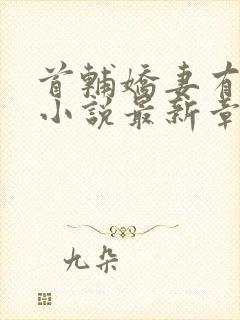 首輔嬌妻有
小說最新章
九朵